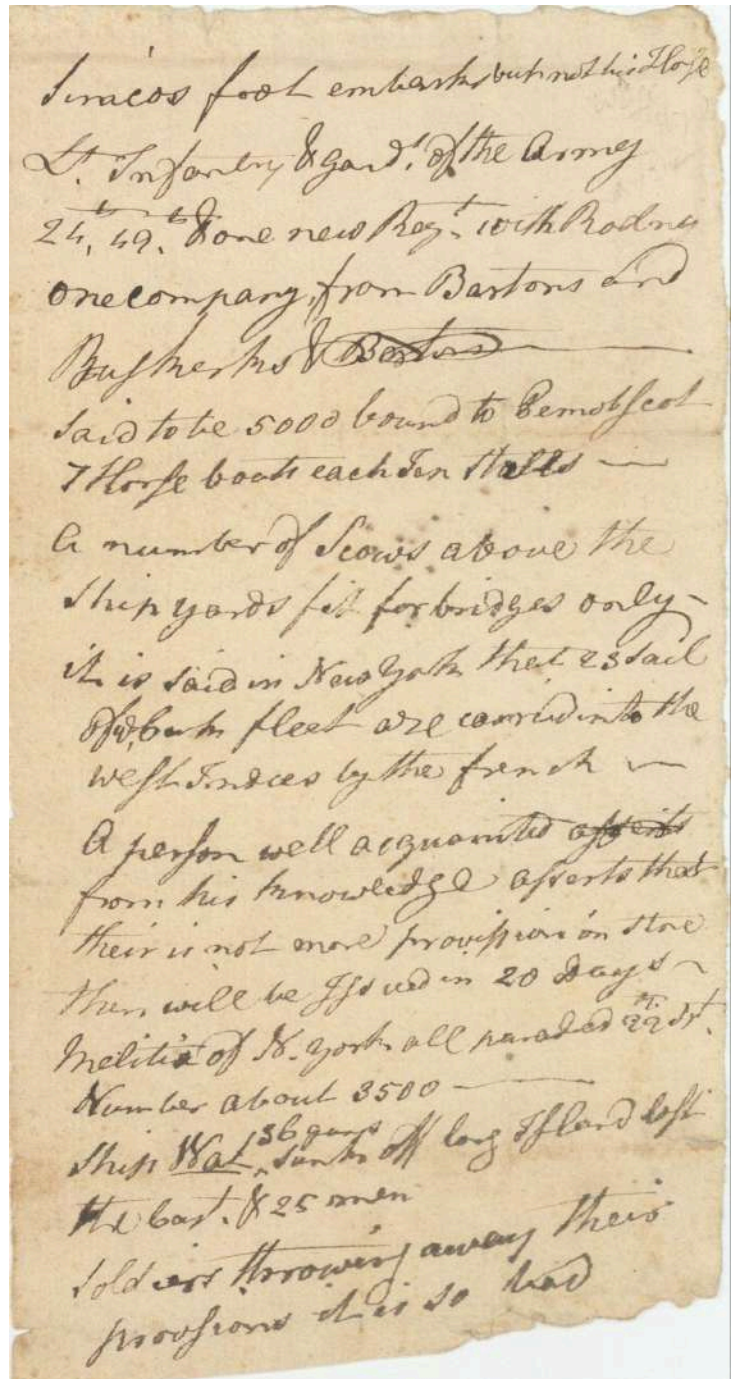 Simcos foot embark, but not his Horse
Lt. Infantry & Gard.s of the Army
24th, 49th, & one new Regt. with Rodny
one company, from Bartons and
Buskerks & Bartons
Said to be 5000 bound to Pemobscot
7 Horse boats each Ten Stalls —
A number of Scows above the
Ship yards fit for bridges only —
it is said in New York that 23 Sail
of fleet are carried into the
west Indees by the french —
A person well acquainted asserts
from his knowledge asserts that
their is not more provission in Store
then will be Issued in 20 Days —
Melitia of N. York all paraded 22nd
Number about 3500 —
Ship Wat 36 guns Sunk off long Island lost
the & 25 men
Soldiers throwing away their
provsions it is so bad